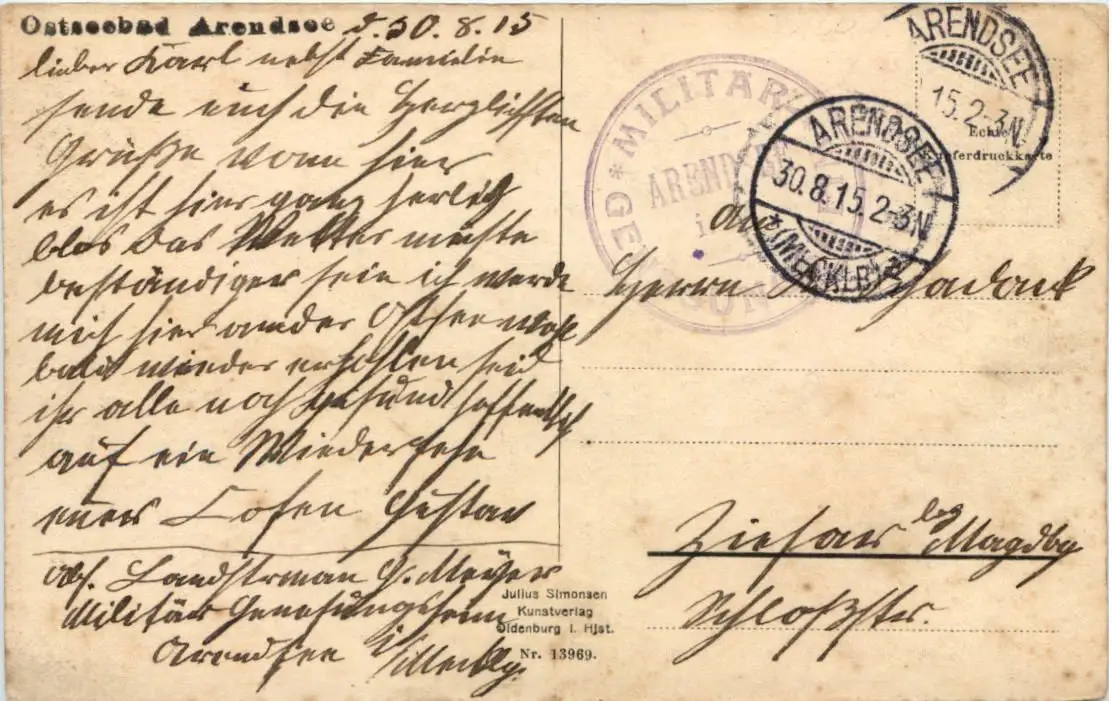 Ostseebad Arendsee d. 30. 8. 15
lieber Karl nebst Familie
sende euch die Herzlichsten
Grüße vonn hier
es ist hier ganz herlig
blos das Wetter müchte
beständiger sein ich werde
mich hier ander Ostsee wohl
bald wieder erhohlen seid
ihr alle noch gesund hoffentlich
auf ein Wiedersehn
euer Gustav
Abs. Landstrman G. Meyer
Militär Genesungsheim
Arendsee i/ Mecklbg.
Julius Simonsen
Kunstverlag
Oldenburg i. Hlst.
Nr. 13969.
MILITÄR
GE
ARENDSEE
ARENDSEE
30.8.15.2-3N
*(MECKLB)*
ARENDSEE
15.2-3N
Echte
Kupferdruckkarte
an
Herrn
Ziesar bei Magdbg
Schloßstr.